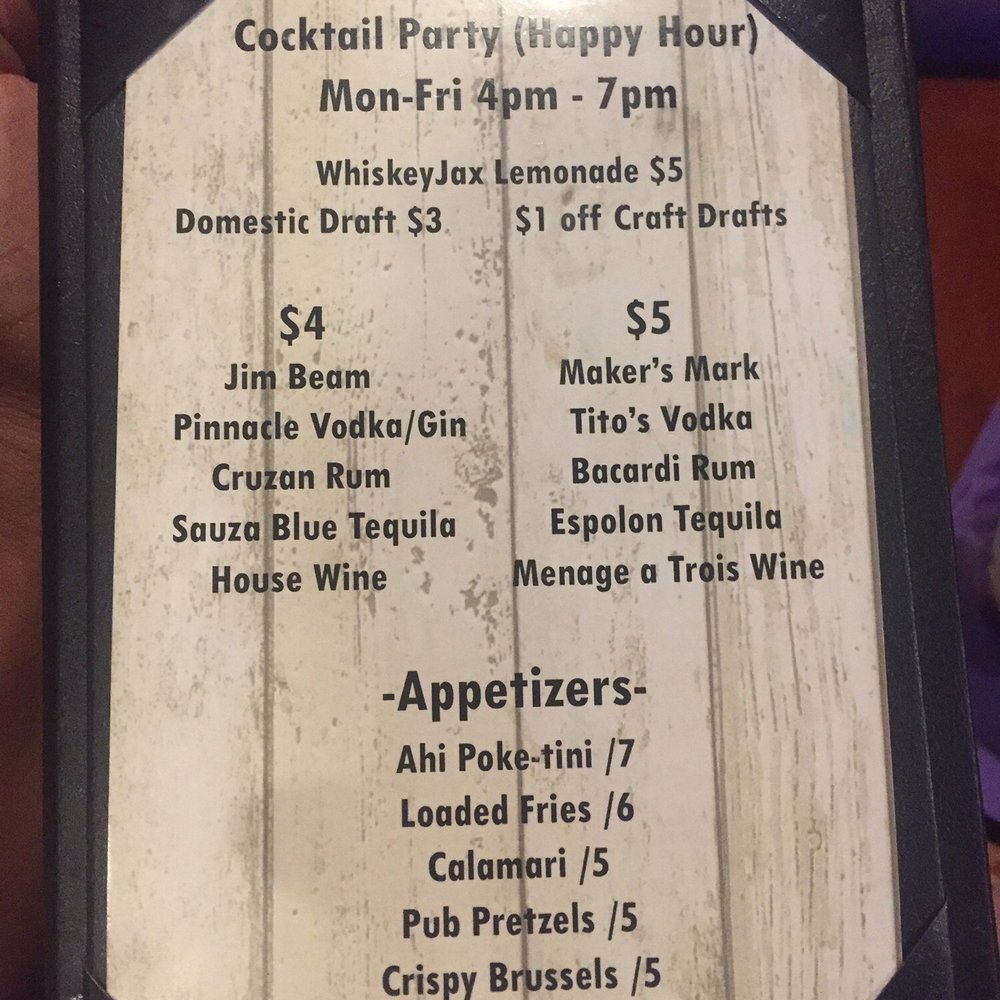 Cocktail Party (Happy Hour)
Mon-Fri 4pm - 7pm
WhiskeyJax Lemonade $5
Domestic Draft $3 $1 off Craft Drafts
$4
Jim Beam
Pinnacle Vodka/Gin
Cruzan Rum
Sauza Blue Tequila
House Wine
$5
Maker's Mark
Tito's Vodka
Bacardi Rum
Espolon Tequila
Menage a Trois Wine
-Appetizers-
Ahi Poke-tini /7
Loaded Fries /6
Calamari /5
Pub Pretzels /5
Crispy Brussels /5